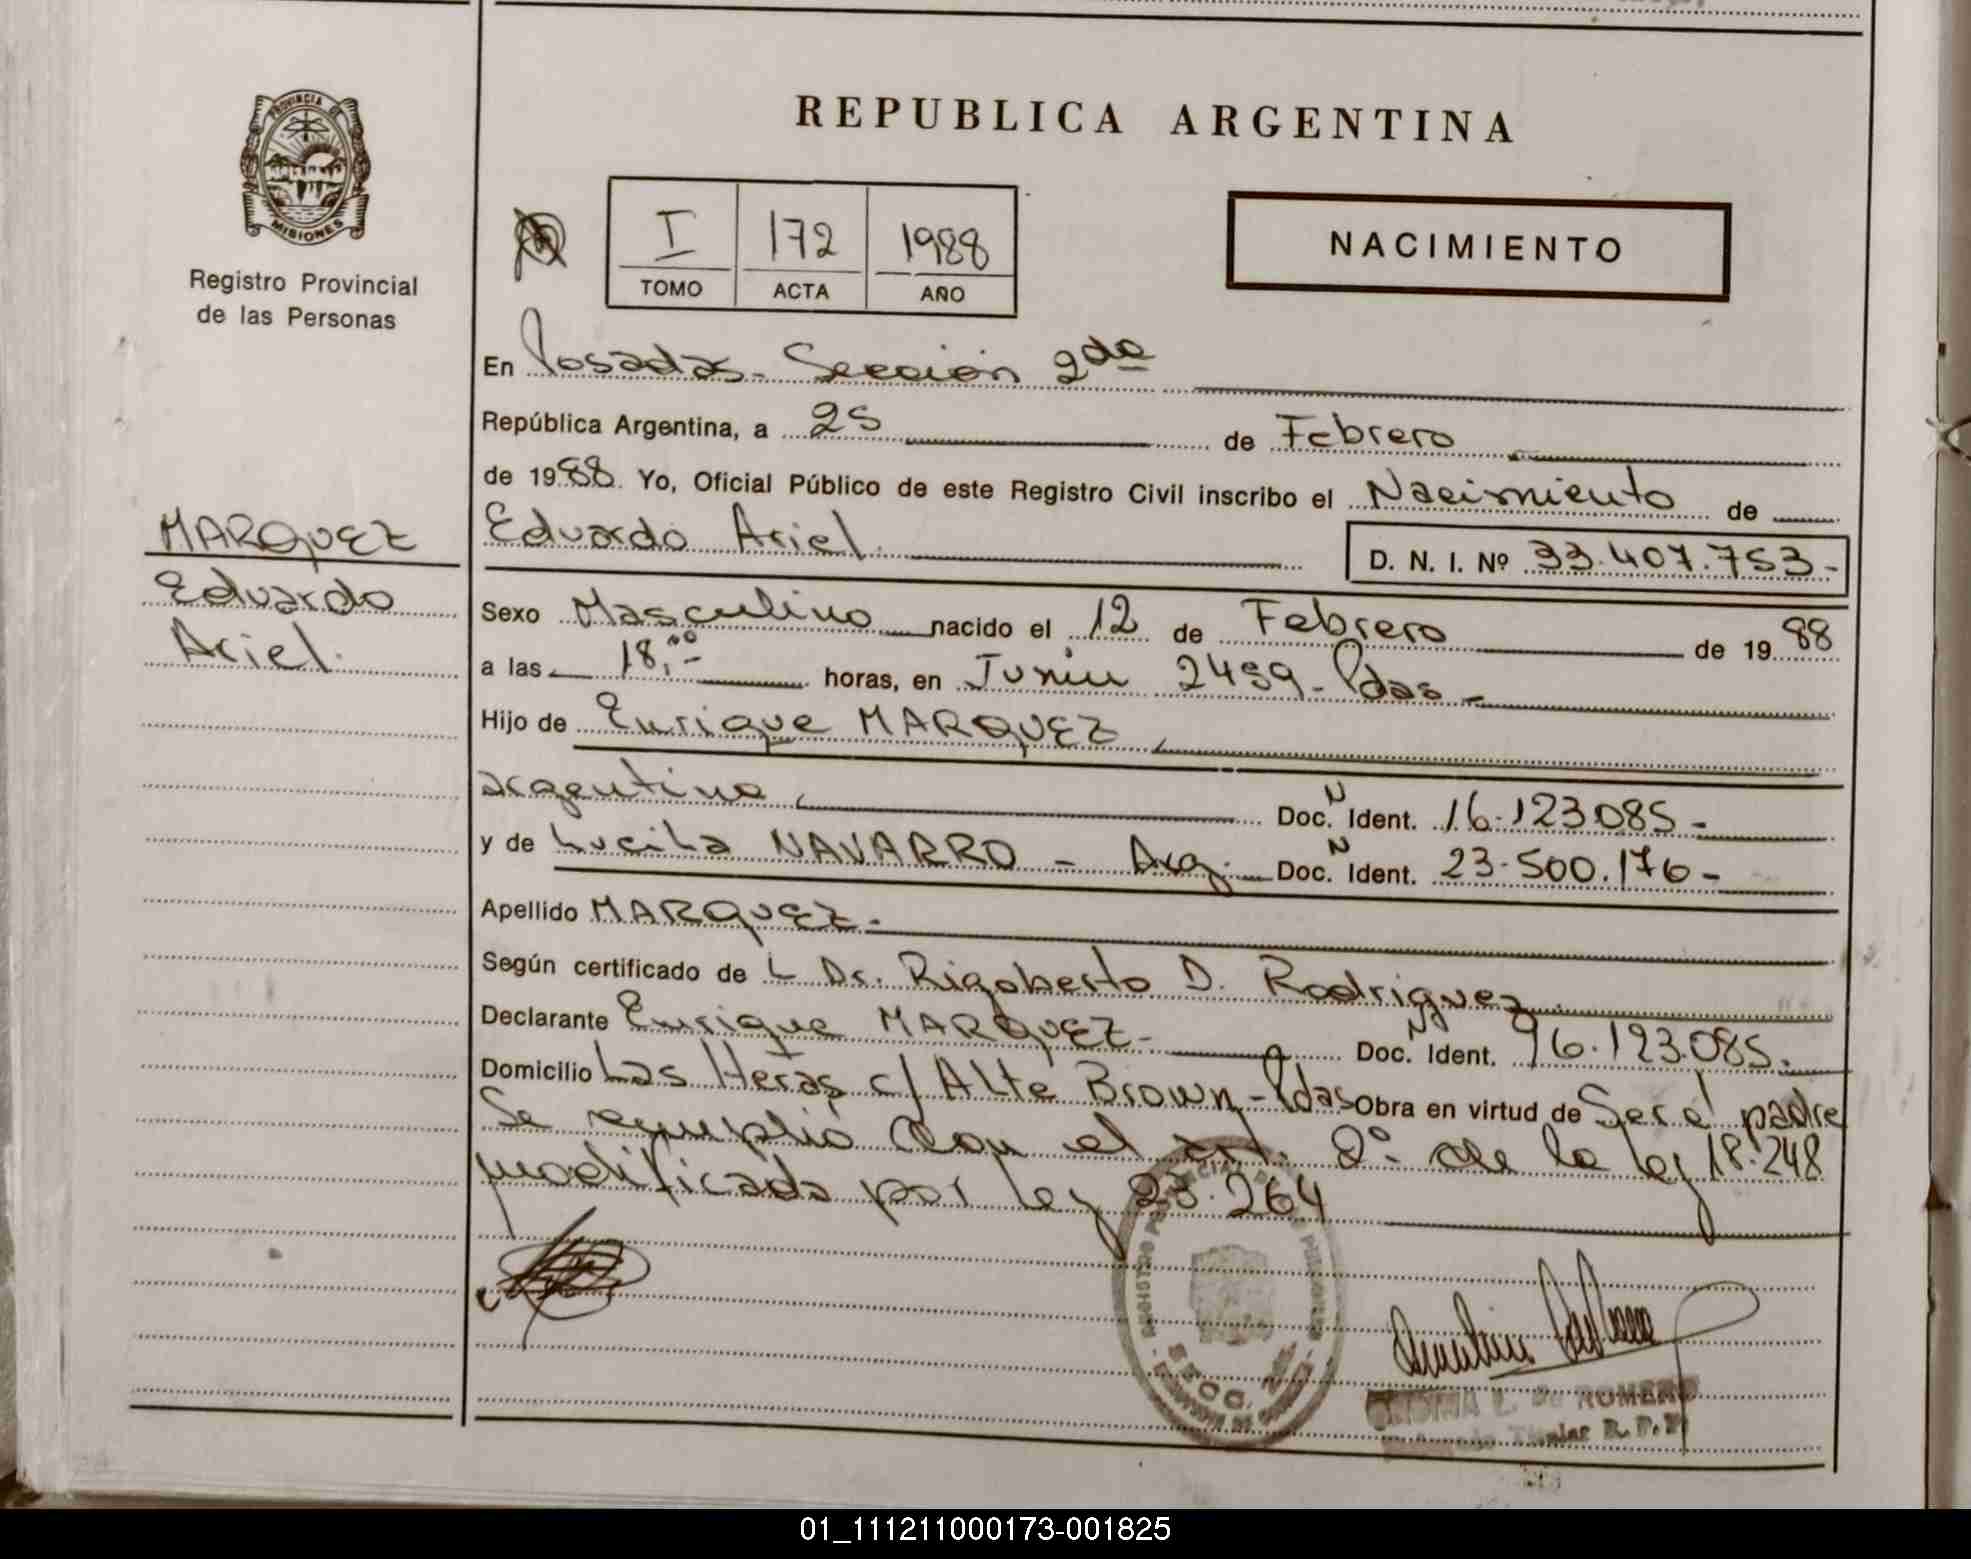 REPUBLICA ARGENTINA
PROVINCIA DE
MISIONES
Registro Provincial
de las Personas
I 172 1988
TOMO ACTA AÑO
NACIMIENTO
En Posadas - Sección 2da
República Argentina, a 25 de Febrero
de 1988. Yo, Oficial Público de este Registro Civil inscribo el Nacimiento de
Eduardo Ariel. D. N. I. Nº 33.407.753-
MARQUEZ
Eduardo
Ariel.
Sexo Masculino nacido el 12 de Febrero de 1988
a las 18,00- horas, en Junin 2459- Pdas-
Hijo de Enrique MARQUEZ,
argentino, Doc. N Ident. 16.123.085-
y de Lucila NAVARRO - Arg. Doc. N Ident. 23.500.176-
Apellido MARQUEZ.
Según certificado de L Dr. Rigoberto D. Rodriguez.
Declarante Enrique MARQUEZ- Doc. N Ident. 16.123.085.
Domicilio Las Heras c/ Alte Brown - Pdas Obra en virtud de Ser el padre
Se cumplió con el art. 2º de la ley 18.248
modificada por ley 23.264
L. de ROMERO
Titular R. P. P.
01_111211000173-001825